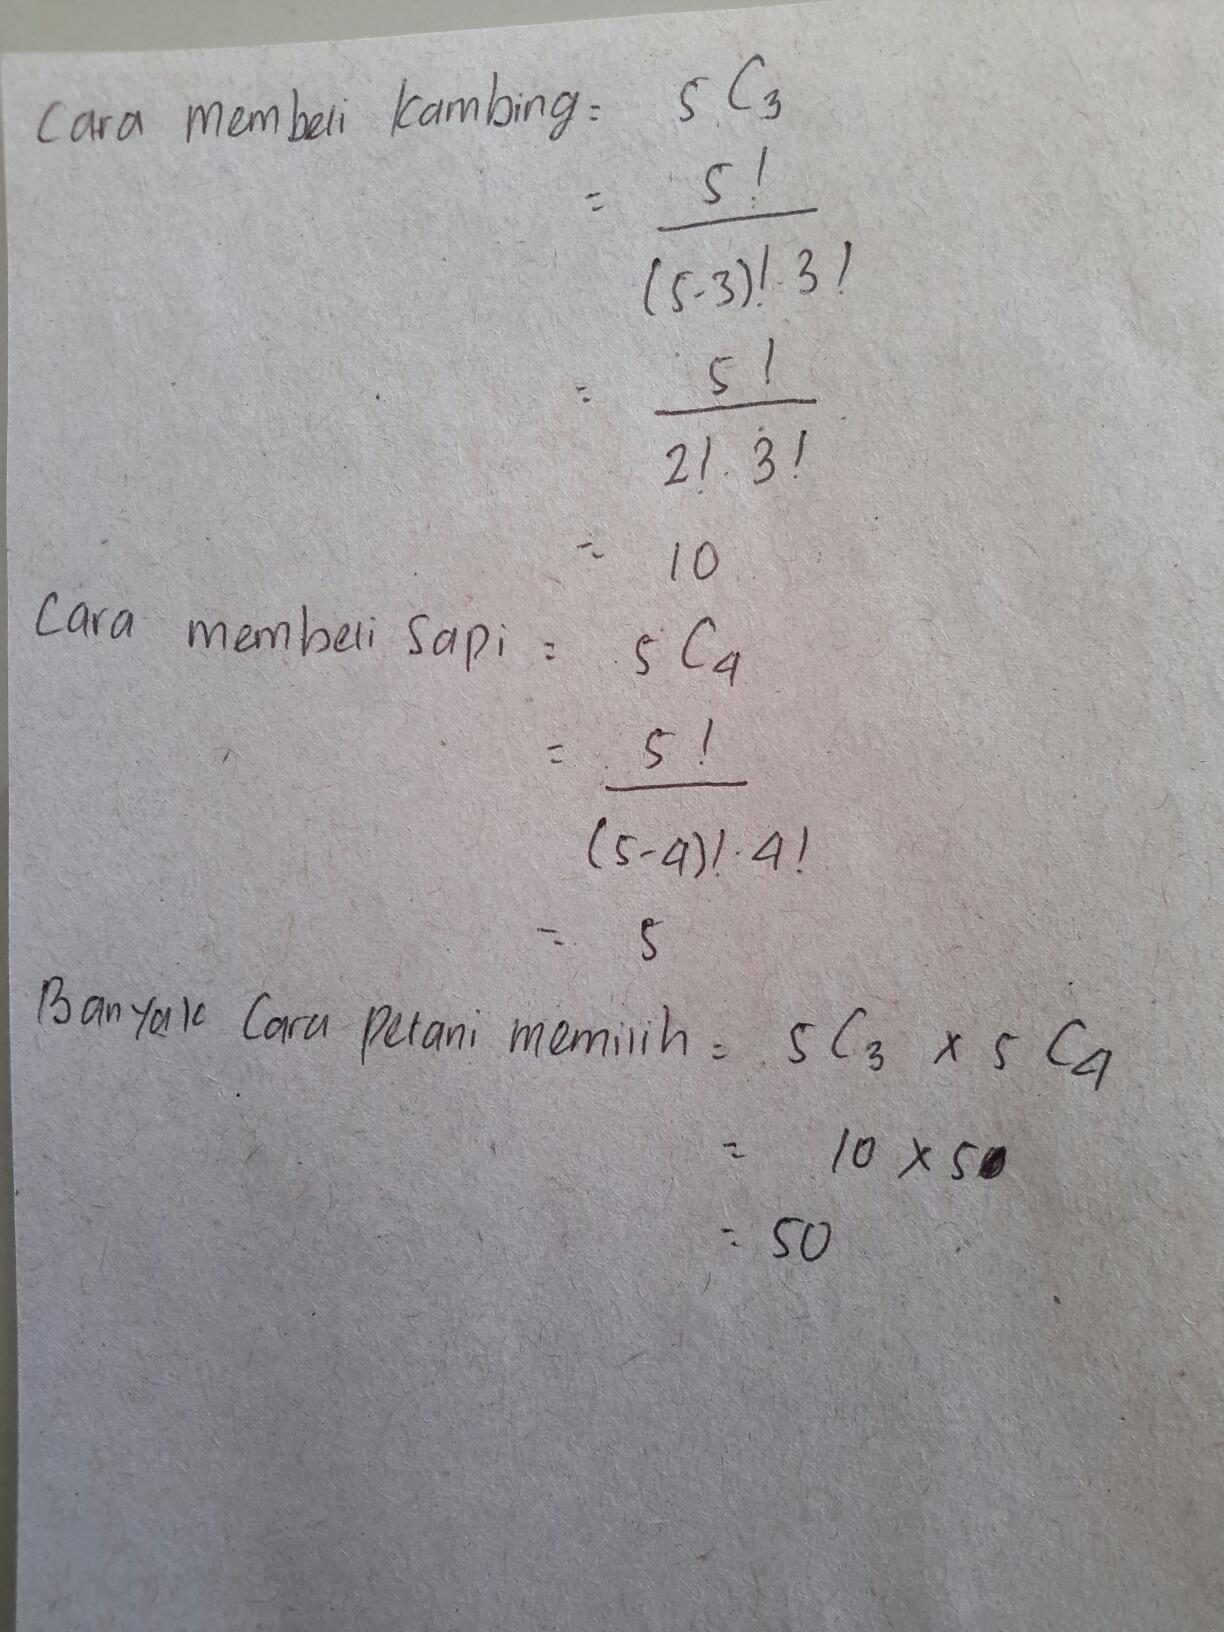 Cara membeli kambing = 5C3
= 5!
(5-3)!.3!
= 5!
2!.3!
= 10
Cara membeli sapi = 5C4
= 5!
(5-4)!.4!
= 5
Banyak Cara petani memilih = 5C3 x 5C4
= 10 x 5
= 50